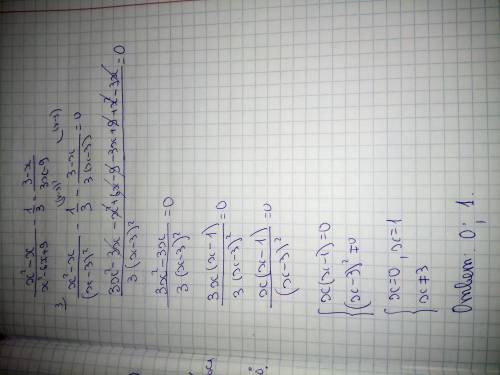 x²-x / x²-6x+9 - 1/3 = 3-x / 3x-9
3 (x-3)² (x-3)
x²-x / (x-3)² - 1/3 - 3-x / 3(x-3) = 0
3x²-3x-x²+6x-9-3x+9+x²-3x / 3(x-3)² = 0
3x²-3x / 3(x-3)² = 0
3x(x-1) / 3(x-3)² = 0
x(x-1) / (x-3)² = 0
{ x(x-1)=0
(x-3)²≠0
{ x=0, x=1
x≠3
Ответ: 0; 1.